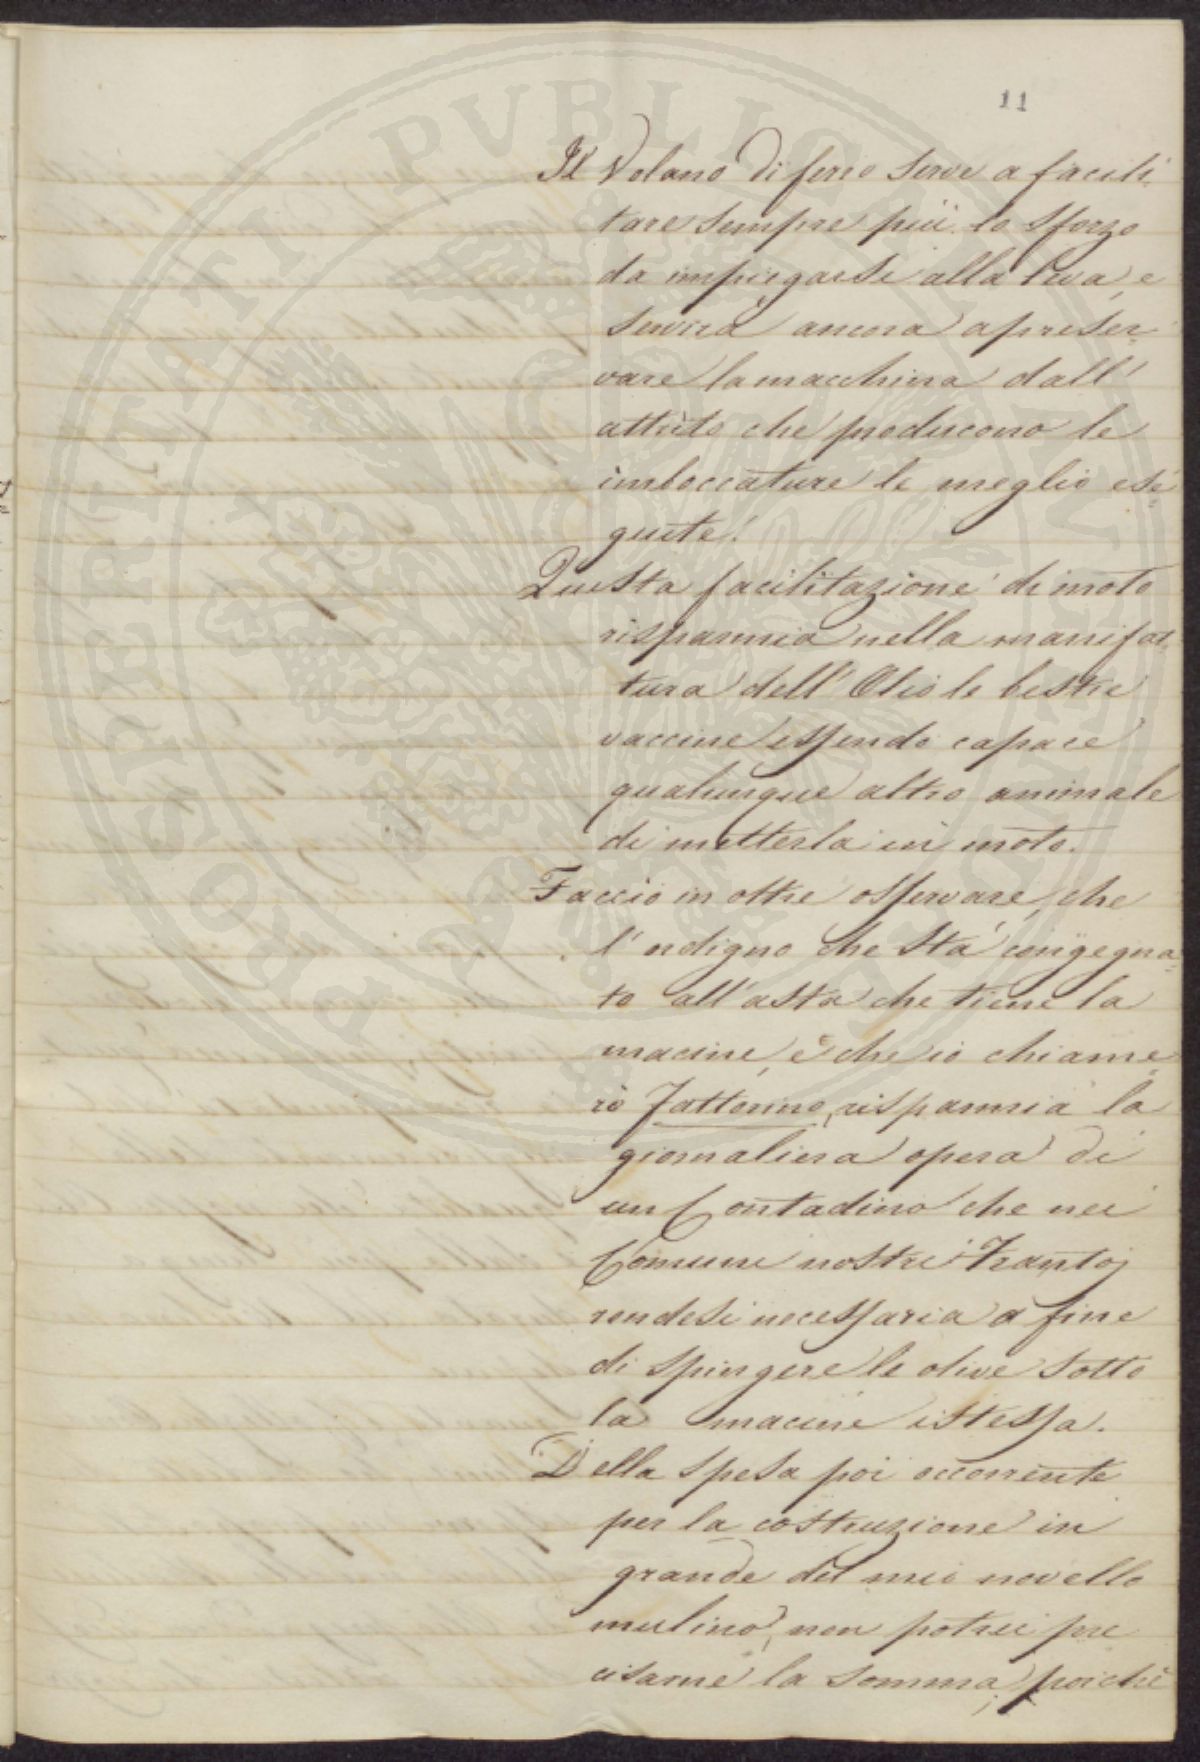 11
Il Volano di ferro serve a facili-
tare sempre più lo sforzo
da impiegarsi alla leva, e
servirà ancora a preser-
vare la macchina dall'
attrito che producono le
imboccature le meglio ese-
guite.
Questa facilitazione di moto
risparmia nella manifat-
tura dell'Olio le bestie
vaccine essendo capace
qualunque altro animale
di metterla in moto.
Faccio in oltre osservare, che
l'ordigno che stà congegna-
to all'asta che tiene la
macine, e che io chiame-
rò Fattorino, risparmia la
giornaliera opera di
un Contadino che nei
Comuni nostri Frantoj
rendesi necessaria a fine
di spingere le olive sotto
la macine istessa.
Della spesa poi occorrente
per la costruzione in
grande del mio novello
mulino, non potrei pre
cisarne la somma, poichè
PROSPERITATI PVBLICAE